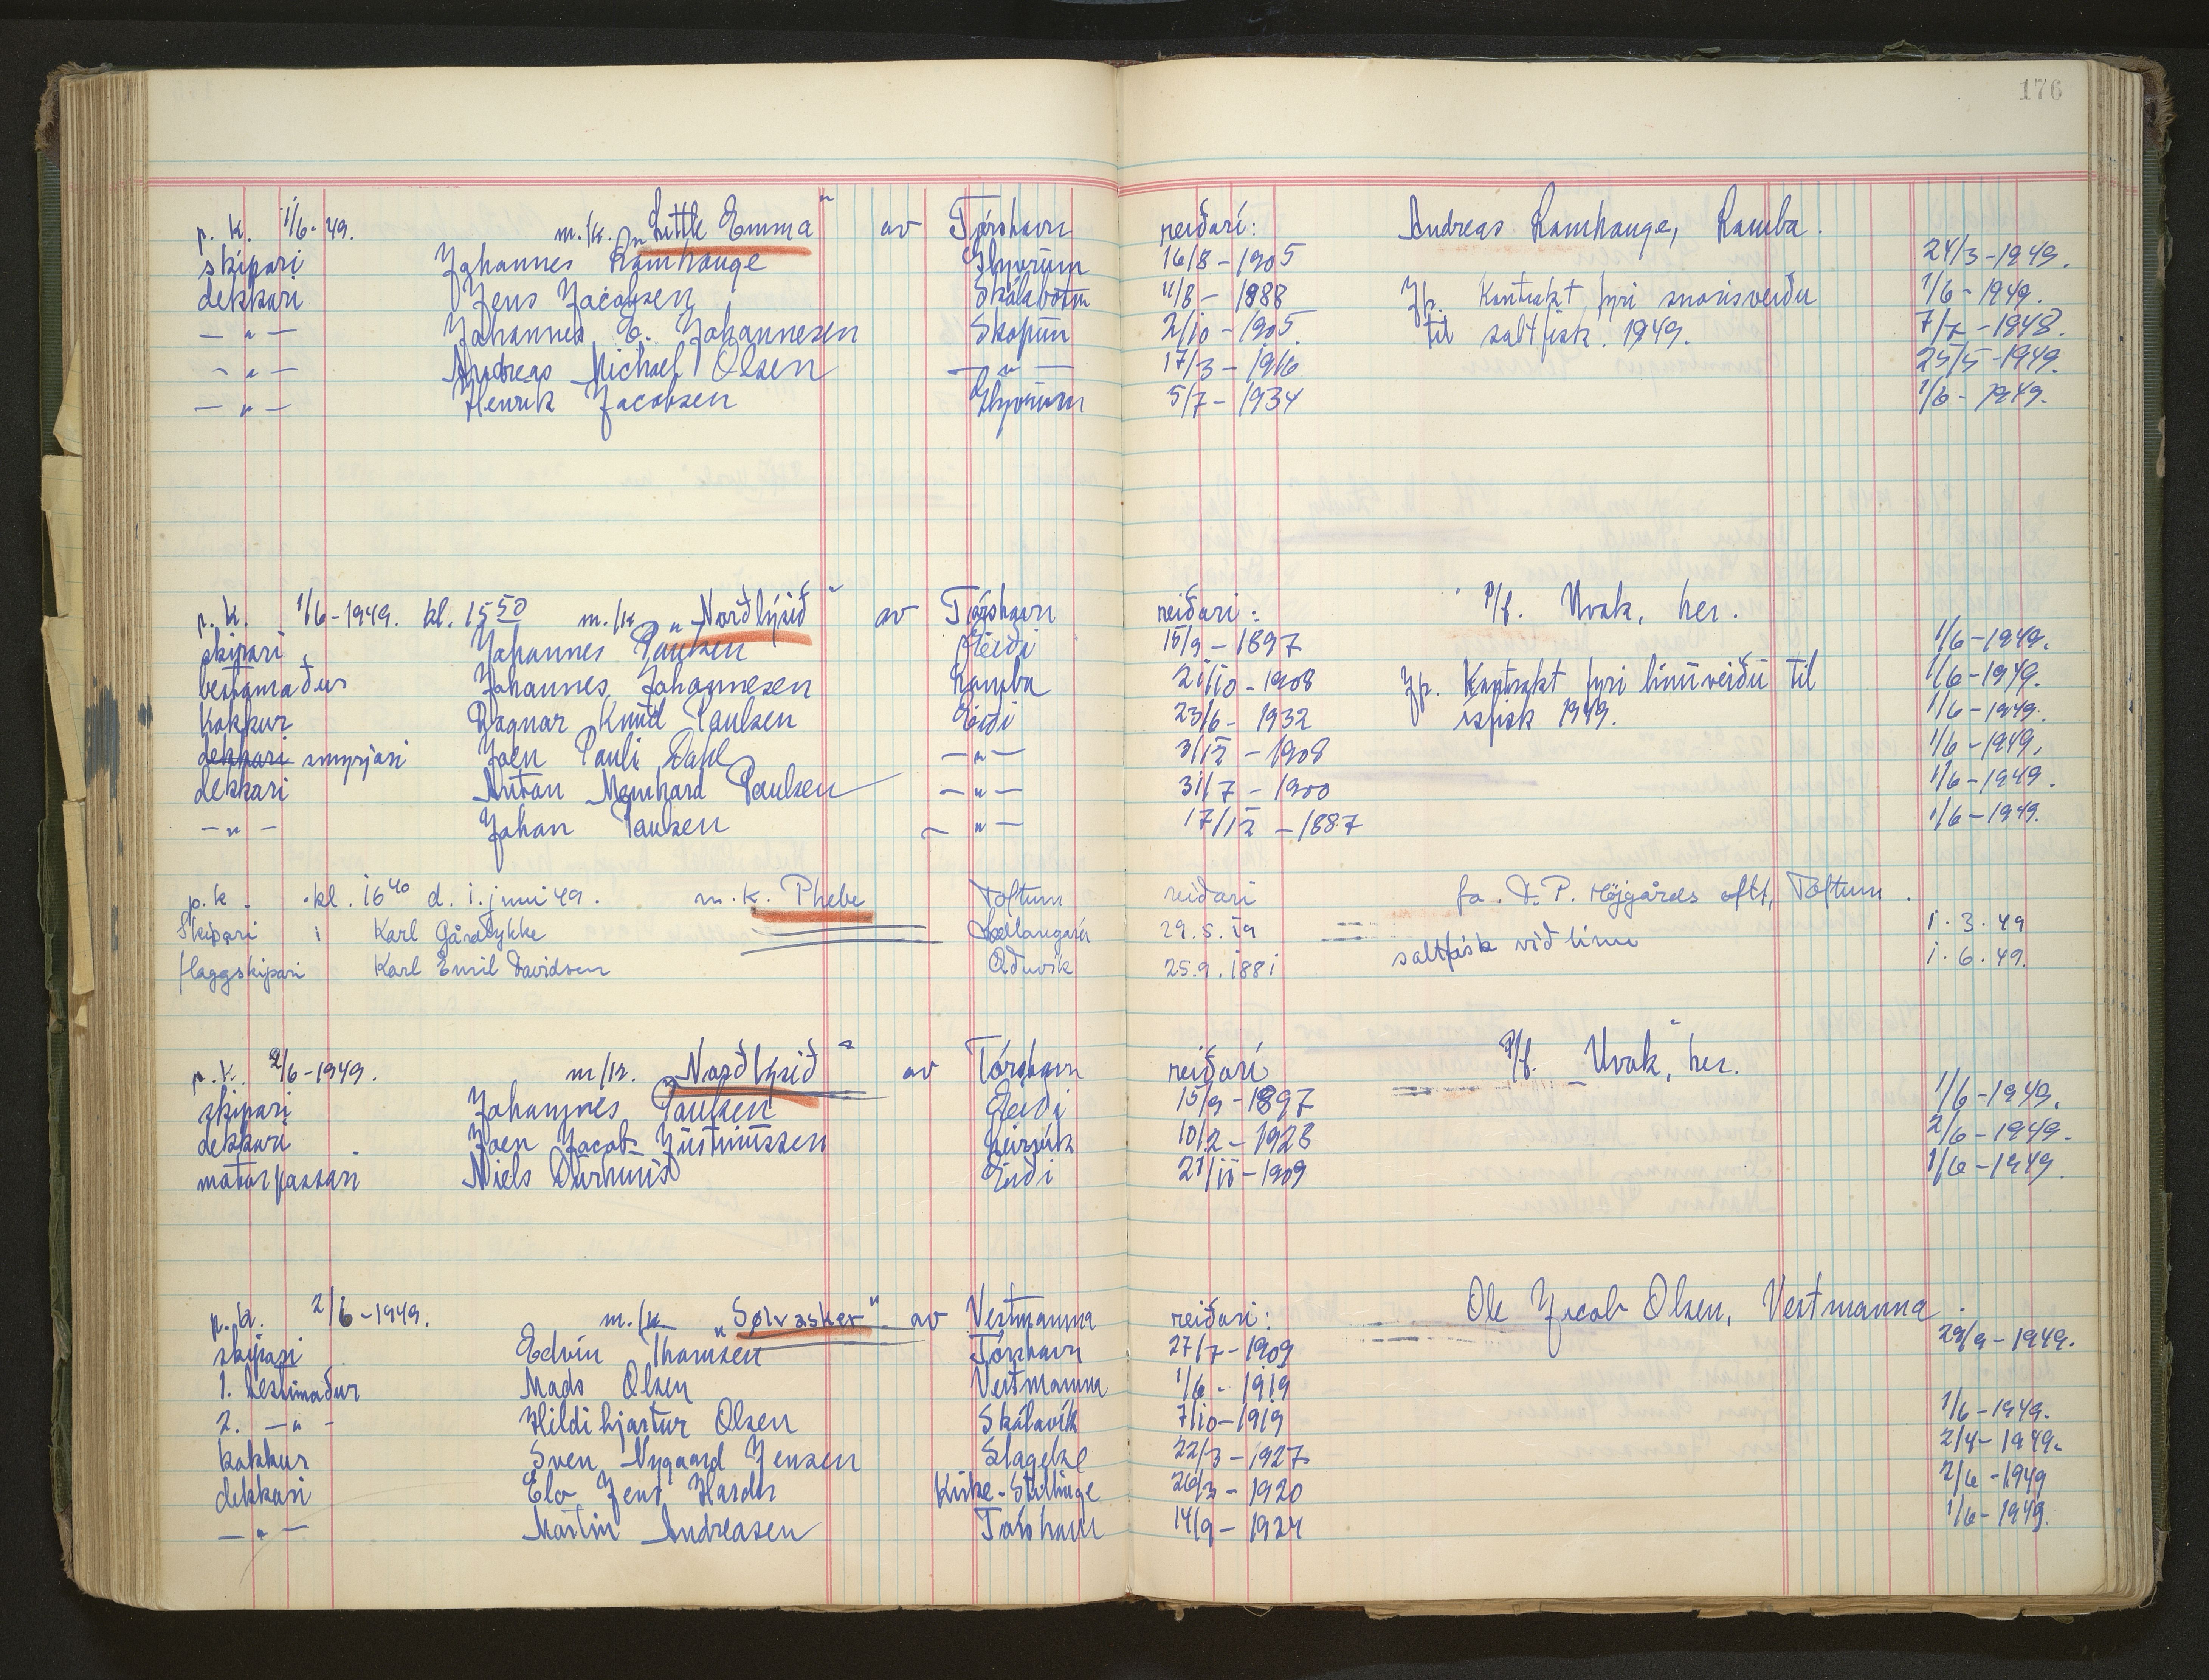 176
p. k. 1/6-49. m./k. „Little Emma" av Tórshavn reiðari: Andreas Ramhauge, Ramba.
skipari Johannes Ramhauge Glyvrum 16/8-1905 24/3-1949.
dekkari Jens Jacobsen Skálabotn 11/8-1888 Jp. Kontrakt fyri snørisveiðu 1/6-1949.
—„— Johannes E. Johannesen Skopun 2/10-1905. til saltfisk. 1949. 7/7-1948.
—„— Andreas Michael Olsen —„— 17/3-1916 25/5-1949.
—„— Henrik Jacobsen Glyvrum 5/7-1934 1/6-1949.
p. k. 1/6-1949. kl. 15 50 m./k „Norðlýsið" av Tórshavn reiðari: P/f. Uvak, her.
skipari Johannes Paulsen Eiði 15/9-1897 1/6-1949.
bestamaður Johannes Johannesen Ramba 21/10-1908 Jp. Kontrakt fyri línuveiðu til 1/6-1949.
kokkur Ragnar Knud Paulsen Eiði 23/6-1932 ísfisk 1949. 1/6-1949.
dekkari smyrjari Joen Pauli Dahl —„— 3/12-1908 1/6-1949.
dekkari Anton Meinhard Paulsen —„— 31/7-1900 1/6-1949.
—„— Johan Paulsen —„— 17/12-1887 1/6-1949.
p.k. kl. 16 40 d. 1. juni 49. m.k. Phebe Toftum reiðari fa. D. P. Højgårds eftf, Toftum.
Skipari Karl Gårdlykke 29.5.19 1.3.49
flaggskipari Karl Emil Davidsen Oðuvík 25.9.1881 saltfisk við línu 1.6.49.
p. k. 2/6-1949. m/k. „Norðlýsið" av Tórshavn reiðari P/f. „Uvak", her.
skipari Johannes Paulsen Eiði 15/9-1897 1/6-1949.
dekkari Joen Jacob Justinussen Leirvík 10/2-1928 2/6-1949.
motorpassari Niels Durhuus Eiði 21/11-1909 1/6-1949.
p. k. 2/6-1949. m./k „Sølvasker" av Vestmanna reiðari: Ole Jacob Olsen, Vestmanna.
skipari Edvin Thomsen Tórshavn 27/7-1909 29/9-1949.
1. bestimaður Mads Olsen Vestmanna 1/6-1919
2. —„— Hildibjartur Olsen Skálavík 7/10-1919 1/6-1949.
kokkur Sven Nygaard Jensen Slagelse 22/3-1927 2/4-1949.
dekkari Elo Jens Harder Kirke-Stillinge 26/3-1920 2/6-1949
—„— Martin Andreasen Tórshavn 14/9-1924 1/6-1949.